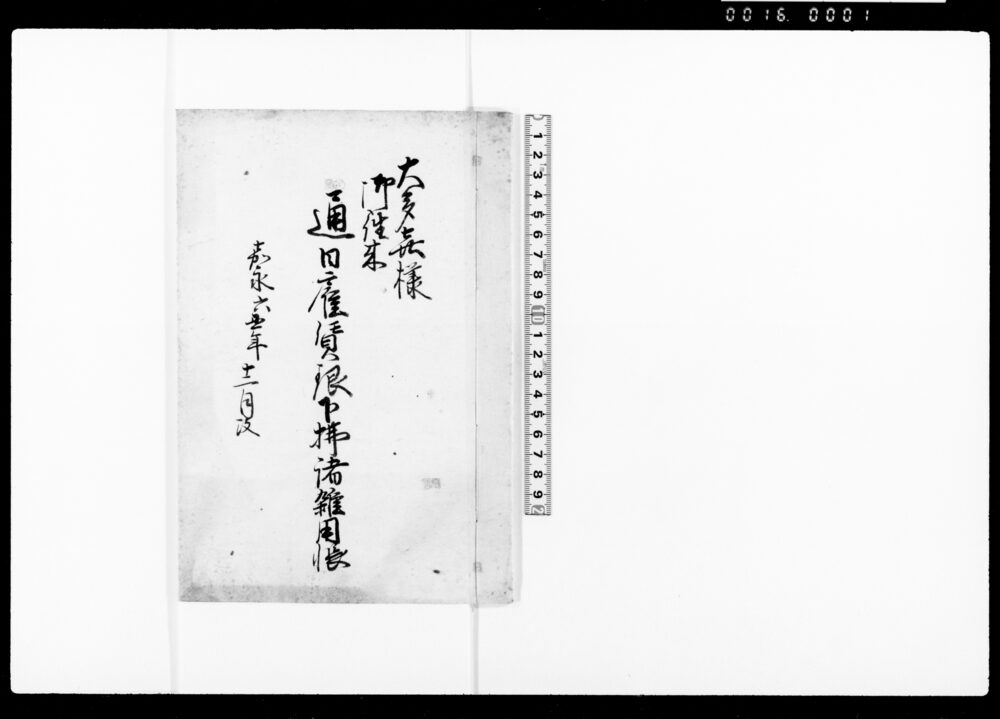 0016. 0001
大多喜様
御往来
通日雇賃銀下払諸雑用帳
嘉永六丑年
十二月改
1 2 3 4 5 6 7 8 9 10 1 2 3 4 5 6 7 8 9 2